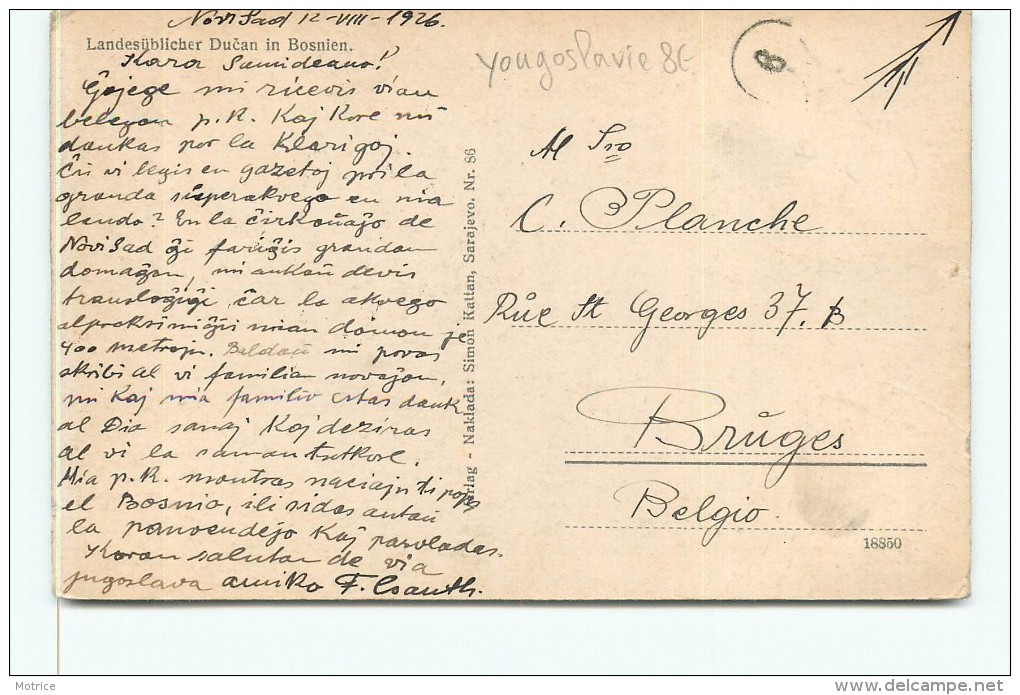 Novi Sad 12-VIII-1926.
Landesüblicher Dučan in Bosnien.
Kara Samideano!
Ĝojege mi ricevis vian
belegan p.K. Kaj Kore mi
dankas por la Klarigoj.
Ĉu vi legis en gazetoj pri la
granda superakvego en nia
lando? En la ĉirkaŭaĵo de
Novi Sad ĝi fariĝis grandan
domaĝon, mi ankaŭ devis
transloĝiĝi, ĉar la akvego
alproksimiĝis mian domon je
400 metrojn. Baldaŭ mi povas
skribi al vi familian novaĵon,
mi Kaj mia familio estas dank'
al Dio sanaj Kaj deziras
al vi la saman tutkore.
Mia p.K. montras naciajn tipojn
el Bosnio, ili sidas antaŭ
la panvendejo Kaj paroladas.
Koran saluton de via
jugoslava amiko F. Csanth.
Verlag - Naklada: Simon Kattan, Sarajevo. Nr. 86
yougoslavie 8€
8
Al Sro
C. Planche
Rŭe St Georges 37. B
Brŭges
Belgio.
18850
Motrice
http://www.delcampe.net